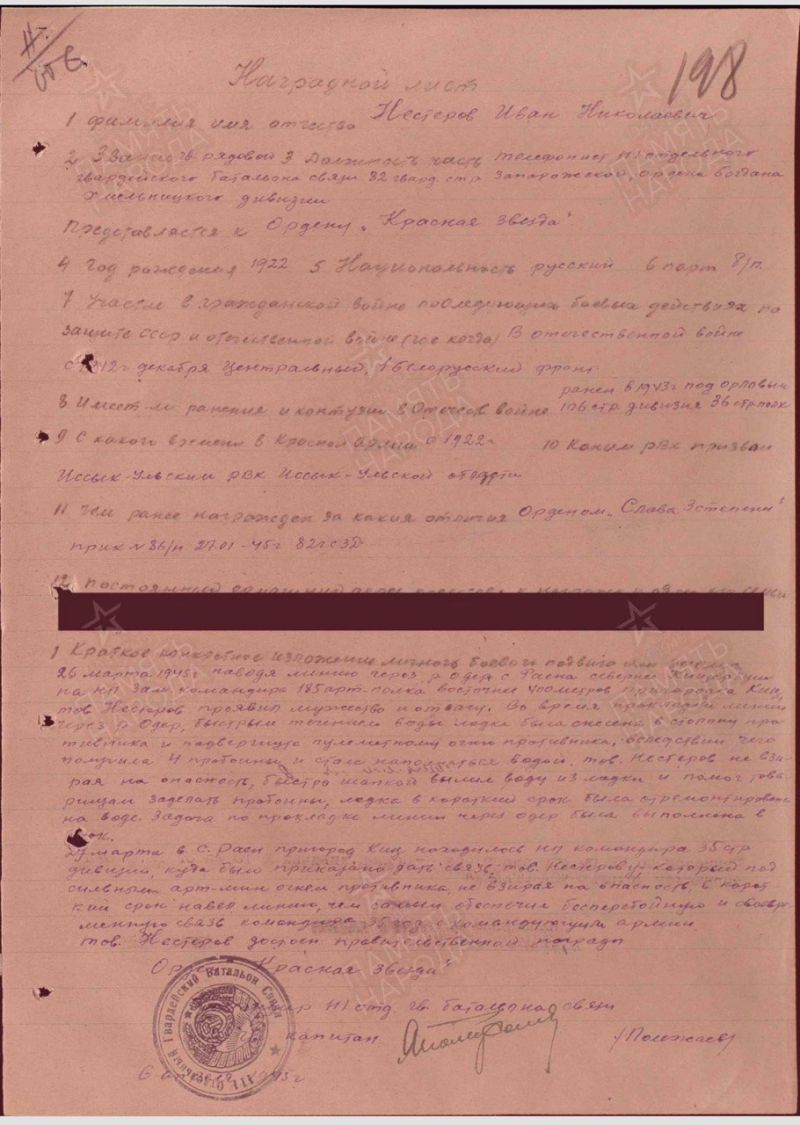 198
Наградной лист
1 Фамилия имя отчество Нестеров Иван Николаевич
2 Звание гв рядовой 3 Должность часть телефонист 111 отдельного
гвардейского батальона связи 82 гвард. стр Запорожской ордена Богдана
Хмельницкого дивизии
Представляется к Ордену „Красная Звезда"
4 Год рождения 1922 5 Национальность русский 6 парт б/п
7 Участие в гражданской войне последующих боевых действиях по
защите СССР и отечественной войне (где когда) В отечественной войне
декабря Центральный, 1 Белорусский фронт
ранен в 1943г под орловым
8 Имеет ли ранения и контузии в Отечеств войне 106 стр дивизия 36 стр полк
9 С какого времени в Красной Армии с 1922г 10 Каким РВК призван
Иссык-Ульским РВК Иссык-Ульской области
11 Чем ранее награжден за какия отличия Орденом „Слава 3 степени"
прик № 86/н 27.01-45г 82гсд
12 Постоянный
1 Краткое конкретное изложение личного боевого подвига или
26 марта 1945г наводя линию через р Одер с Раена севернее
на нп зам. командира 185 арт-полка восточнее 400 метров пригородка Киц
тов Нестеров проявил мужество и отвагу. Во время прокладки линии
через р Одер, быстрым течением воды лодка была снесена в сторону про
тивника и подвергнута пулеметному огню противника, вследствии чего
получила 4 пробоины и стала наполняться водой. тов. Нестеров не взи-
рая на опасность, быстро шапкой вылил воду из лодки и помог това-
рищам заделать пробоины, лодка в короткий срок была отремонтирована
на воде. Задача по прокладке линии через одер была выполнена в
срок.
марта в с. Раен пригород Киц находилось нп командира 35 стр
дивизии, куда было приказано дать связь, тов. Нестеров который под
сильным арт-мин огнем противника, не взирая на опасность, в корот
кий срок навел линию, чем самым обеспечил бесперебойную и своевре
менную связь командира с командующим армии
тов. Нестеров достоин правительственной награды
Красная Звезда"
111 отд. гв. батальона связи
капитан /Полежаев/
111 Отдельный Гвардейский Батальон Связи
6 1945г